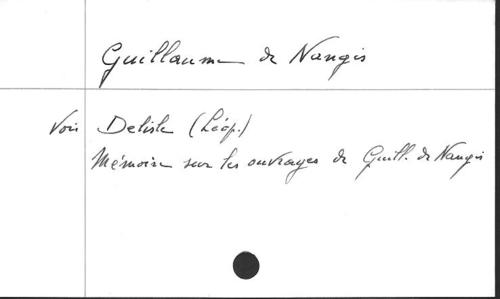 Guillaume de Nangis
Voir Delisle (Léop.)
Mémoire sur les ouvrages de Guill. de Nangis